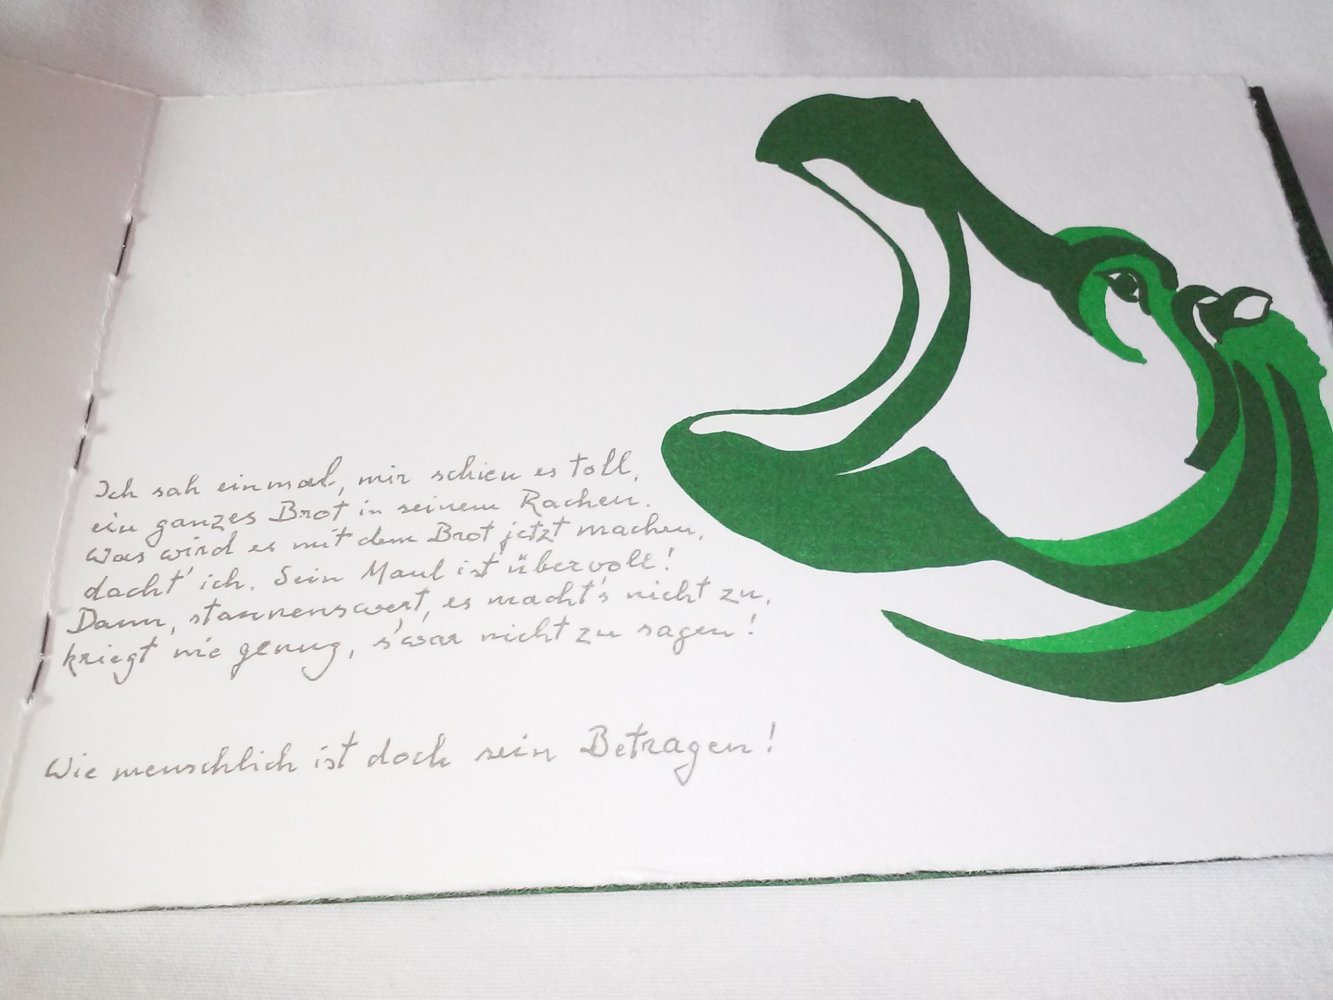 Ich sah einmal, mir schien es toll,
ein ganzes Brot in seinem Rachen.
Was wird es mit dem Brot jetzt machen,
dacht' ich. Sein Maul ist übervoll!
Dann, staunenswert, es macht's nicht zu,
kriegt nie genug, s'war nicht zu sagen!
Wie menschlich ist doch sein Betragen!